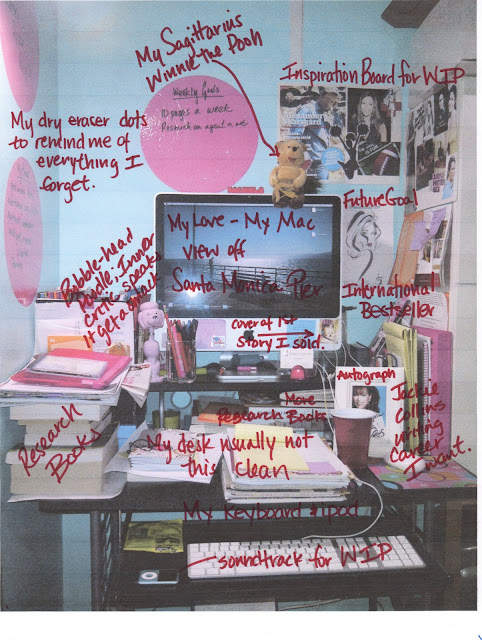 My Sagittarius
Winnie the Pooh
Inspiration Board for WIP
Weekly Goals
10 pages a week
Research
My dry eraser dots
to remind me of
everything I
forget.
Alexander
Skarsgård
My Love - My Mac
view off
Santa Monica Pier
Future Goal
International
Bestseller
Bobble-head
Poodle: Inner
critic speaks
it get a smack
cover of 1st
story I sold.
Autograph
Jackie
Collins
writing
career
I want.
More
Research Books
Research
Books
My desk usually not
this clean
My keyboard & ipod
soundtrack for WIP